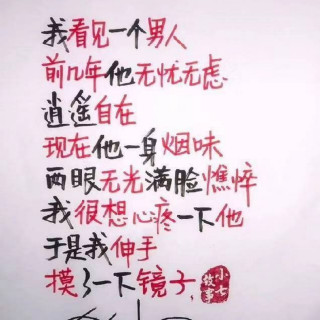 我看见一个男人
前几年他无忧无虑
逍遥自在
现在他一身烟味
两眼无光满脸憔悴
我很想心疼一下他
于是我伸手
摸了一下镜子,
小七故事